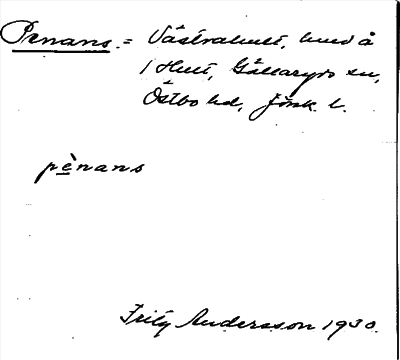 Penans. = Västrahult, hmd å
1 Hult, Gällaryds sn,
Östbo hd, Jönk. l.
pènans
Fritz Andersson 1930.